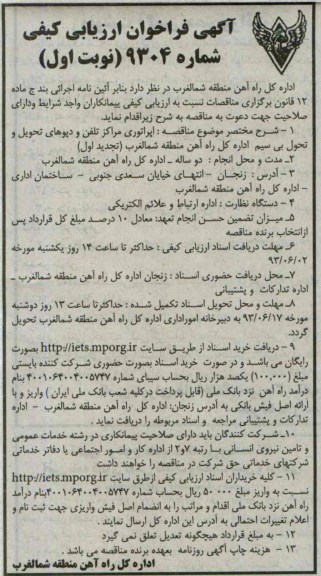 آگهی فراخوان ارزیابی کیفی
شماره ۹۳۰۴ (نوبت اول)
اداره کل راه آهن منطقه شمالغرب در نظر دارد بنابر آئین نامه اجرائی بند ج ماده
۱۲ قانون برگزاری مناقصات نسبت به ارزیابی کیفی پیمانکاران واجد شرایط ودارای
صلاحیت جهت دعوت به مناقصه به شرح زیراقدام نماید.
۱ – شرح مختصر موضوع مناقصه : اپراتوری مراکز تلفن و دپوهای تحویل و
تحول بی سیم اداره کل راه آهن منطقه شمالغرب (تجدید اول)
۲– مدت و محل انجام : دو ساله – اداره کل راه آهن منطقه شمالغرب
۳ – آدرس : زنجان – انتهای خیابان سعدی جنوبی – ساختمان اداری
– اداره کل راه آهن منطقه شمالغرب
۴ – دستگاه نظارت : اداره ارتباط و علائم الکتریکی
۵– میزان تضمین حسن انجام تعهد: معادل ۱۰ درصد مبلغ کل قرارداد پس
ازانتخاب برنده مناقصه
۶– مهلت دریافت اسناد ارزیابی کیفی : حداکثر تا ساعت ۱۴ روز یکشنبه مورخه
۹۳/۰۶/۰۲
۷– محل دریافت حضوری اسناد : زنجان اداره کل راه آهن منطقه شمالغرب –
اداره تدارکات و پشتیبانی
۸– مهلت و محل تحویل اسناد تکمیل شده : حداکثرتا ساعت ۱۳ روز دوشنبه
مورخه ۹۳/۰۶/۱۷ به دبیرخانه اموراداری اداره کل راه آهن منطقه شمالغرب تحویل
گردد.
۹ – دریافت خرید اسناد از طریق سایت http://iets.mporg.ir بصورت
رایگان می باشد و در صورت خرید اسناد بصورت حضوری شرکت کننده بایستی
مبلغ (۱۰۰,۰۰۰) یکصد هزار ریال بحساب سیبای شماره ۴۰۰۱۰۶۴۰۰۴۰۰۵۷۴۷ بنام
درآمد راه آهن نزد بانک ملی (قابل پرداخت درکلیه شعب بانک ملی ایران ) واریز و با
ارائه اصل فیش بانکی به آدرس زنجان: اداره کل راه آهن منطقه شمالغرب – اداره
تدارکات و پشتیبانی مراجعه و اسناد مربوطه را دریافت نماید .
۱۰– شرکت کنندگان باید دارای صلاحیت پیمانکاری در رشته خدمات عمومی
و تامین نیروی انسانی با رتبه ۷و۲ از اداره کار و امور اجتماعی یا دفاتر خدماتی
شرکتهای خدماتی حق شرکت در مناقصه را خواهند داشت
۱۱ – کلیه خریداران اسناد ارزیابی کیفی ازطرق سایت http://iets.mporg.ir
نسبت به واریز مبلغ ۵۰۰۰۰ ریال بحساب شماره ۴۰۰۱۰۶۴۰۰۴۰۰۵۷۴۷بنام درآمد
راه آهن نزد بانک ملی اقدام و مراتب را به انضمام اصل فیش واریزی جهت ثبت نام و
اعلام تغییرات احتمالی به آدرس این اداره کل ارسال نمایند .
۱۲ – به مبلغ قرارداد هیچگونه تعدیل تعلق نمی گیرد
۱۳ – هزینه چاپ آگهی روزنامه بعهده برنده مناقصه می باشد .
اداره کل راه آهن منطقه شمالغرب